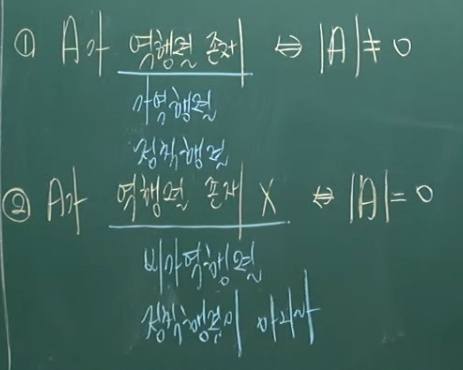 ① A가 역행렬 존재 ⇔ |A| ≠ 0
가역행렬
정칙행렬
② A가 역행렬 존재 X ⇔ |A| = 0
비가역행렬
정칙행렬이 아니다